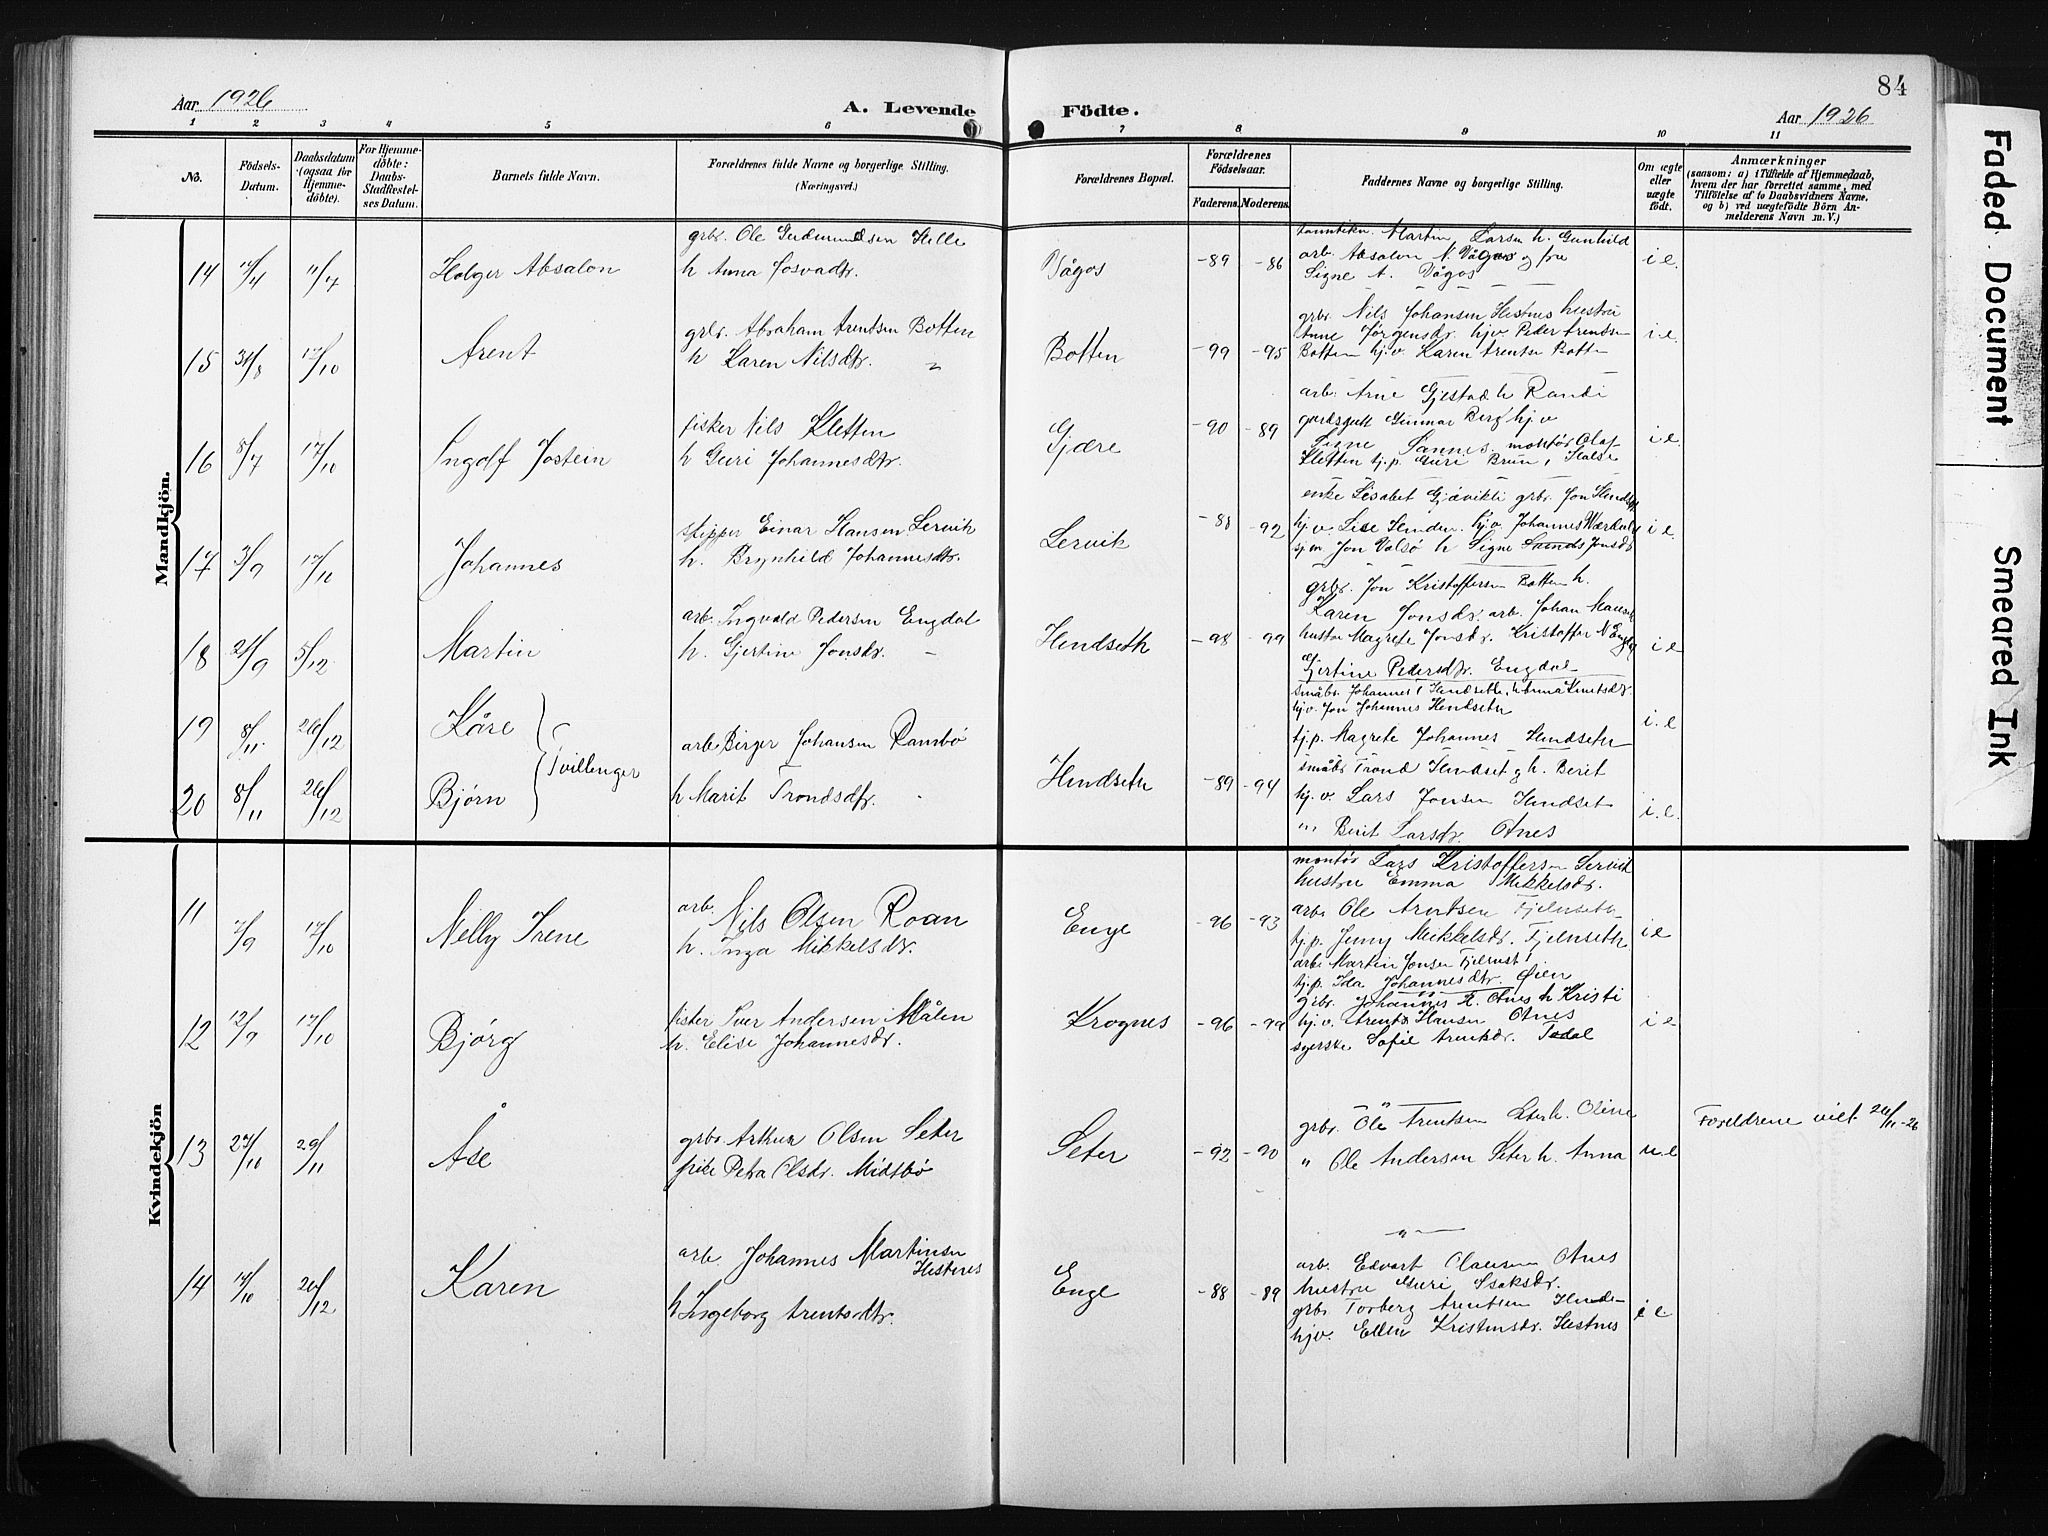 84
Aar 1926
A. Levende Födte.
Aar 1926
1 2 3 4 5 6 7 8 9 10 11
No.
Födsels-Datum.
Daabsdatum (ogsaa for Hjemmedöbte).
For Hjemmedöbte: Daabs-Stadfæstelses Datum.
Barnets fulde Navn.
Forældrenes fulde Navne og borgerlige Stilling.
(Næringsvei.)
Forældrenes Bopæl.
Forældrenes Födselsaar.
Faderens. Moderens.
Faddernes Navne og borgerlige Stilling.
Om ægte eller uægte födt.
Anmærkninger
(saasom: a) i Tilfælde af Hjemmedaab,
hvem der har forrettet samme, med
Tilföielse af to Daabsvidners Navne,
og b) ved uægtefödte Börn Anmelderens Navn m. V.)
Mandkjön.
14 Holger Absalon
grbr. Ole Gudmundsen Helle
h Anna Josvadtr.
Vågos -89 -86
Martin Larsen h. Gunhild
arb. Absalon N. Vågos og fru
Signe A. Vågos
i e.
15 31/8 17/10 Arent
grbr. Abraham Arentsen Botten
h Karen Nilsdtr. "
Botten -99 -95
grbr. Nils Johansen Hestnes hustru
Anne Jørgensdr. hjv. Peder Arentsen
Botten hj.v. Karen Arentsn Botten
i e.
16 8/7 17/10 Ingolf Jostein
fisker Nils Kletten
h Guri Johannesdtr.
Gjøre -90 -89
arb. Arne Gjestad h Randi
gårdsgutt Gunnar Berg hj.v
Signe Sannes. montør Olaf
Kletten tj.p. Guri Brun, Halse
i e.
17 3/9 17/10 Johannes
skipper Einar Hansen Lervik
h. Brynhild Johannesdtr.
Lervik -88 -92
enke Lisabet Gjåvikli grbr. Jon
hj.v. Lise Henden. hj.v. Johannes
Jon Valsø h Signe Jonsdr
i e.
18 21/9 5/12 Martin
arb. Ingvald Pedersen Engdal
h. Gjertine Jonsdr. -
Hendseth -98 -99
grbr. Jon Kristoffersen Botten h.
Karen Jonsdr. arb. Johan
hustru Magrete Jonsdr. Kristoffer N
Gjertine Pedersdtr. Engdal
i e
19 8/11 26/12 Kåre
20 8/11 26/12 Bjørn
Tvillinger
arb. Birger Johansen Rambø
h Marit Trondsdtr. -
Hendseth -89 -94
småbr. Johannes i Hendseth, h Anna Knutsdtr.
hj.v. Jon Johannes Hendseth
tj.p. Magrete Johannes Hendseth
i. e
småbr Trond Hendset og h. Berit
hj.v. Lars Jonsen Hendset
" Berit Larsdr. Otnes
i. e.
Kvindekjön
11 7/9 17/10 Nelly Irene
arb. Nils Olsen Roan
h. Inga Mikkelsdr.
Enge -96 -93
montør Lars Kristoffersen Lervik
hustru Emma Mikkelsdr.
arb. Ole Arentsen Fjelnseth
tj.p. Jenny Mikkelsdr. Fjelnseth
arb. Martin Jonsen
tj.p. Ida Johannesdtr. Øien
i e
12 12/9 17/10 Bjørg
fisker Iver Andersen Målen
h. Elise Johannesdr.
Krognes -96 -99
grbr. Johannes E. Otnes h Kristi
hj.v. Arent Hansen Otnes
syerske Sofie Arentsdr. Todal
i e
13 27/10 29/11 Åse
grbr Arthur Olsen Seter
pike Petra Olsdr. Midtbø
Seter -92 -90
grbr. Ole Arentsen Seter h. Oline
" Ole Andersen Seter h. Anna
u. e
Foreldrene viet 26/11-26
14 19/10 26/12 Karen
arb. Johannes Martinsen
Hestnes
h Ingeborg Arentsdtr.
Enge -88 -89
arb. Edvart Olausen Otnes
hustru Guri Isaksdr.
grbr Torberg Arentsen
hjv. Ellen Kristensdr. Hestnes
i e
Faded Document
Smeared Ink